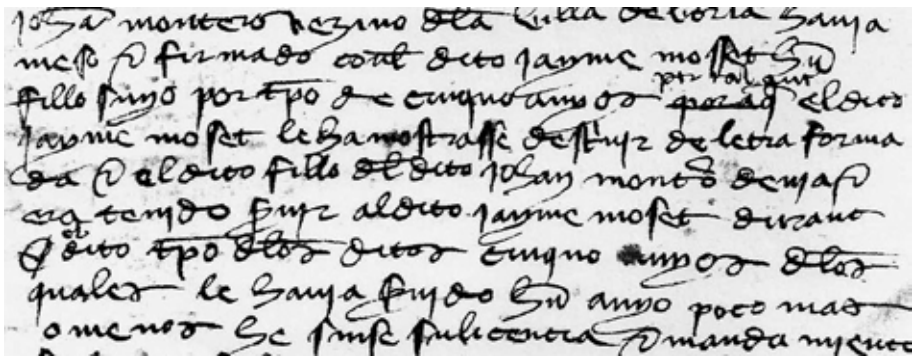 johan montero vezino dla villa de boria havia
meso & firmado conl dito jayme mosset hũ
fillo suyo por tpo de cinquo anyos per tal que el dito
jayme moset le ha mostrasse descriuir de letra forma
da & el dito fillo dl dito johan montero deuia &
era tenido seruir al dito jayme moset durant
el dito tpo dlos ditos cinquo anyos dlos
quales le hauja seruido hũ anyo poco mas
o menos he sinse su licentia & manda miento